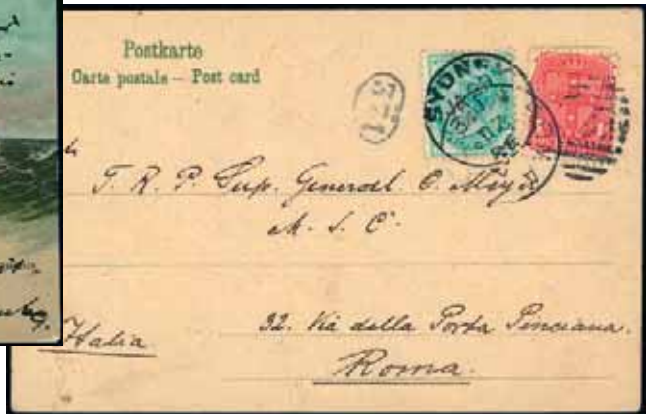 Postkarte
Carte postale – Post card
SYDNEY
T. R. P. Sup. General C. Meyer
M. S. C.
Italia
32. Via della Porta Pinciana.
Roma.